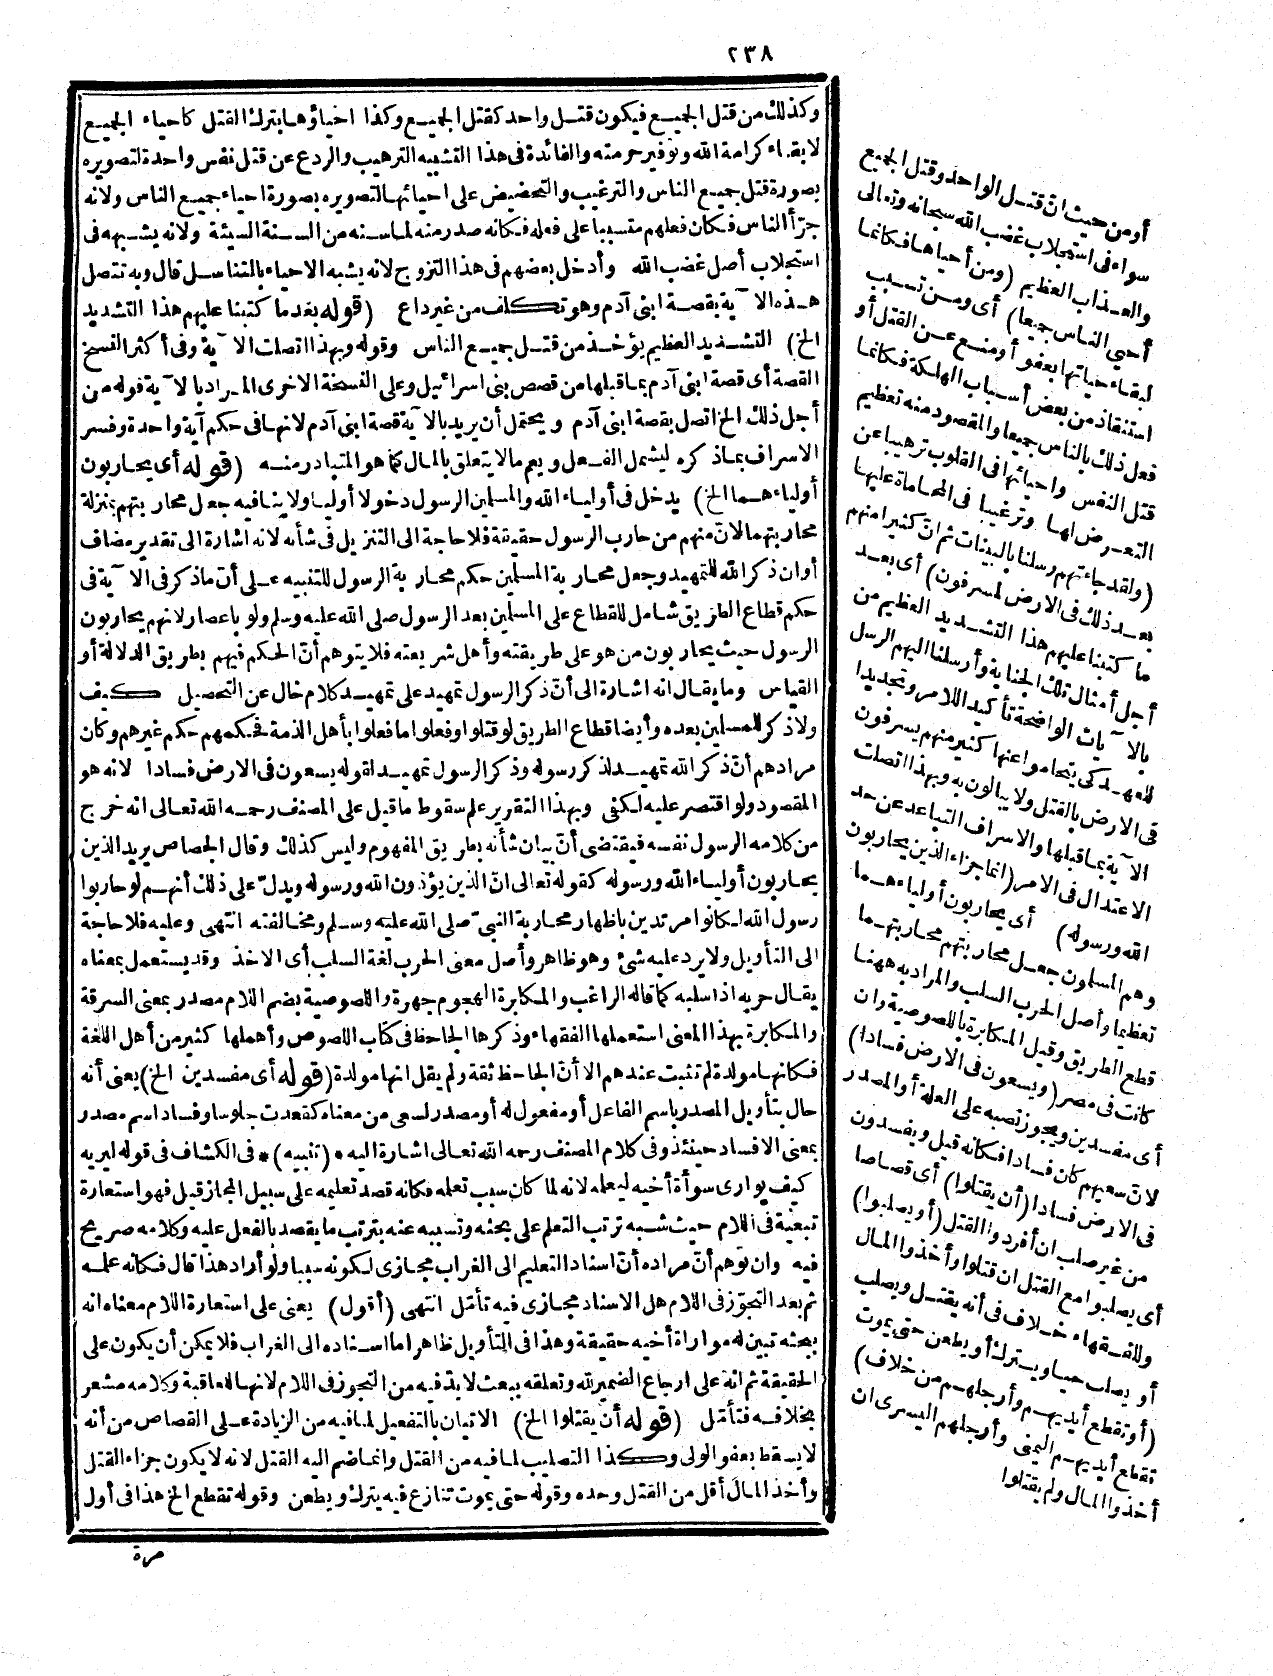 ٢٣٨
وكذلك من قتل الجميع فيكون قتل واحد كقتل الجميع وكذا احياؤها بترك القتل كاحياء الجميع
لابقاء كرامة الله وتوفير حرمته والفائدة فى هذا التشبيه الترهيب والردع عن قتل نفس واحدة لتصويره
بصورة قتل جميع الناس والترغيب والتحضيض على احيائها لتصويره بصورة احياء جميع الناس ولانه
جرّأ الناس فكان فعلهم متسببا على فعله فكانه صدر منه لماسنه من السنة السيئة ولانه يشبهه فى
استجلاب أصل غضب الله وأدخل بعضهم فى هذا التزوج لانه يشبه الاحياء بالتناسل قال وبه تتصل
هذه الآية بقصة ابنى آدم وهو تكلف من غير داع (قوله بعد ما كتبنا عليهم هذا التشديد
الخ) التشديد العظيم يؤخذ من قتل جميع الناس وقوله وبهذا اتصلت الآية وفى أكثر النسخ
القصة أى قصة ابنى آدم بما قبلها من قصص بنى اسرائيل وعلى النسخة الاخرى المراد بالآية قوله من
أجل ذلك الخ اتصل بقصة ابنى آدم ويحتمل أن يريد بالآية قصة ابنى آدم لانها فى حكم آية واحدة وفسر
الاسراف بما ذكره ليشمل الفعل ويعم مالا يتعلق بالمال كما هو المتبادر منه (قوله أى يحاربون
أولياءهما الخ) يدخل فى أولياء الله والمسلمين الرسول دخولا أوليا ولا ينافيه جعل محاربتهم بمنزلة
محاربتهما لانّ منهم من حارب الرسول حقيقة فلا حاجة الى التنزيل فى شأنه لانه اشارة الى تقدير مضاف
أوان ذكر الله للتمهيد وجعل محاربة المسلمين حكم محاربة الرسول للتنبيه على أن ماذكر فى الآية فى
حكم قطاع الطريق شامل للقطاع على المسلمين بعد الرسول صلى الله عليه وسلم ولو باعصار لانهم يحاربون
الرسول حيث يحاربون من هو على طريقته وأهل شريعته فلا يتوهم أنّ الحكم فيهم بطريق الدلالة أو
القياس وما يقال انه اشارة الى أنّ ذكر الرسول تمهيد على تمهيد كلام خال عن التحصيل كيف
ولاذكر للمسلمين بعده وأيضا قطاع الطريق لو قتلوا وفعلوا ما فعلوا بأهل الذمة فحكمهم حكم غيرهم وكان
مرادهم أنّ ذكر الله تمهيد لذكر رسوله وذكر الرسول تمهيد لقوله يسعون فى الارض فسادا لانه هو
المقصود ولو اقتصر عليه لكفى وبهذا التقرير علم سقوط ما قيل على المصنف رحمه الله تعالى انه خرج
من كلامه الرسول نفسه فيقتضى أنّ بيان شأنه بطريق المفهوم وليس كذلك وقال الجصاص يريد الذين
يحاربون أولياء الله ورسوله كقوله تعالى انّ الذين يؤذون الله ورسوله ويدلّ على ذلك أنهم لو حاربوا
رسول الله لكانوا مرتدين باظهار محاربة النبىّ صلى الله عليه وسلم ومخالفته انتهى وعليه فلا حاجة
الى التأويل ولا يرد عليه شئ وهو ظاهر وأصل معنى الحرب لغة السلب أى الاخذ وقد يستعمل بمعناه
يقال حربه اذا سلبه كما قاله الراغب والمكابرة الهجوم جهرة واللصوصية بضم اللام مصدر بمعنى السرقة
والمكابرة بهذا المعنى استعملها الفقهاء وذكرها الجاحظ فى كتاب اللصوص وأهملها كثير من أهل اللغة
فكانها مولدة لم تثبت عندهم الا أنّ الجاحظ ثقة ولم يقل انها مولدة (قوله أى مفسدين الخ) يعنى أنه
حال بتأويل المصدر باسم الفاعل أو مفعول له أو مصدر لسعى من معناه كقعدت جلوسا وفساد اسم مصدر
بمعنى الافساد حينئذ وفى كلام المصنف رحمه الله تعالى اشارة اليه *(تنبيه)* فى الكشاف فى قوله ليريه
كيف يوارى سوأة أخيه ليعلمه لانه لما كان سبب تعلمه فكانه قصد تعليمه على سبيل المجاز قيل فهو استعارة
تبعية فى اللام حيث شبه ترتب التعلم على بحثه وتسببه عنه بترتب ما يقصد بالفعل عليه وكلامه صريح
فيه وان توهم أنّ مراده أنّ اسناد التعليم الى الغراب مجازى لكونه سببا ولو أراد هذا قال فكانه علمه
ثم بعد التجوّز فى اللام هل الاسناد مجازى فيه تأمّل انتهى (أقول) يعنى على استعارة اللام معناه انه
ببحثه تبين له مواراة أخيه حقيقة وهذا فى التأويل ظاهر اما اسناده الى الغراب فلا يمكن أن يكون على
الحقيقة ثم انه على ارجاع الضمير لله وتعلقه ببعث لابدّ فيه من التجوز فى اللام لانها للعاقبة وكلامه مشعر
بخلافه فتأمّل (قوله أن يقتلوا الخ) الاتيان بالتفعيل لما فيه من الزيادة على القصاص من أنه
لا يسقط بعفو الولى وكذا التصليب لما فيه من القتل وانما ضم اليه القتل لانه لا يكون جزاء القتل
وأخذ المال أقل من القتل وحده وقوله حتى يموت تنازع فيه يترك ويطعن وقوله تقطع الخ هذا فى أول
مرة
أو من حيث انّ قتل الواحد وقتل الجميع
سواء فى استجلاب غضب الله سبحانه وتعالى
والعذاب العظيم (ومن أحياها فكانما
أحيى الناس جميعا) أى ومن تسبب
لبقاء حياتها بعفو أو منع عن القتل أو
استنقاذ من بعض أسباب الهلكة فكانما
فعل ذلك بالناس جميعا والمقصود منه تعظيم
قتل النفس واحيائها فى القلوب ترهيبا عن
التعرض لها وترغيبا فى المحاماة عليها
(ولقد جاءتهم رسلنا بالبينات ثم انّ كثيرا منهم
بعد ذلك فى الارض لمسرفون) أى بعد
ما كتبنا عليهم هذا التشديد العظيم من
أجل أمثال تلك الجناية وأرسلنا اليهم الرسل
بالآيات الواضحة تأكيدا للامر وتجديدا
للعهد كى يتحاموا عنها كثير منهم يسرفون
فى الارض بالقتل ولا يبالون به وبهذا اتصلت
الآية بما قبلها والاسراف التباعد عن حد
الاعتدال فى الامر (انما جزاء الذين يحاربون
الله ورسوله) أى يحاربون أولياءهما
وهم المسلمون جعل محاربتهم محاربتهما
تعظيما وأصل الحرب السلب والمراد به ههنا
قطع الطريق وقيل المكابرة باللصوصية وان
كانت فى مصر (ويسعون فى الارض فسادا)
أى مفسدين ويجوز نصبه على العلة أو المصدر
لانّ سعيهم كان فسادا فكانه قيل ويفسدون
فى الارض فسادا (أن يقتلوا) أى قصاصا
من غير صلب ان أفردوا القتل (أو يصلبوا)
أى يصلبوا مع القتل ان قتلوا وأخذوا المال
وللفقهاء خلاف فى أنه يقتل ويصلب
أو يصلب حيا ويترك أو يطعن حتى يموت
(أو تقطع أيديهم وأرجلهم من خلاف)
تقطع أيديهم اليمنى وأرجلهم اليسرى ان
أخذوا المال ولم يقتلوا